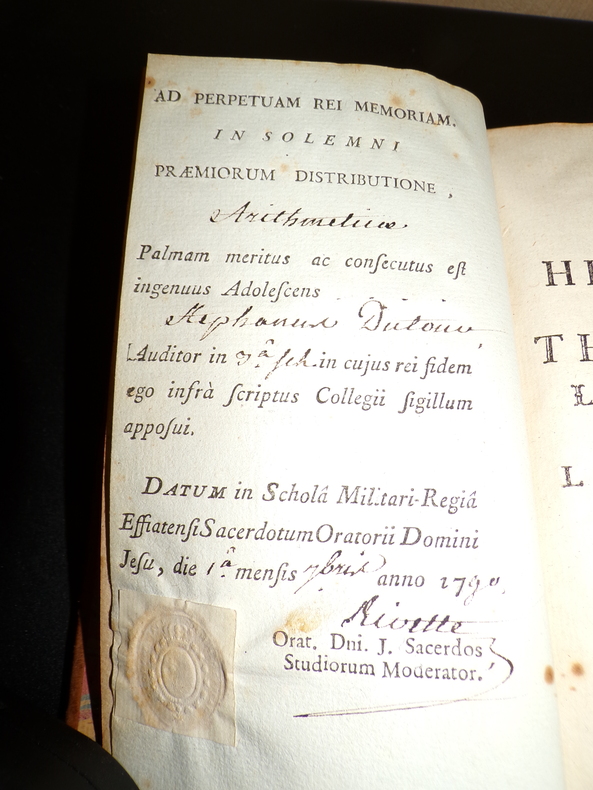 AD PERPETUAM REI MEMORIAM.
IN SOLEMNI
PRÆMIORUM DISTRIBUTIONE,
Arithmeticæ
Palmam meritus ac conſecutus eſt
ingenuus Adoleſcens
Stephanus
Auditor in 3.ª ſch. in cujus rei fidem
ego infrà ſcriptus Collegii ſigillum
appoſui.
DATUM in Scholâ Militari-Regiâ
Effiatenſi Sacerdotum Oratorii Domini
Jeſu, die 1.ª menſis 7bris anno 1790.
Rivette
Orat. Dni. J. Sacerdos
Studiorum Moderator.
HI
TH
L
L